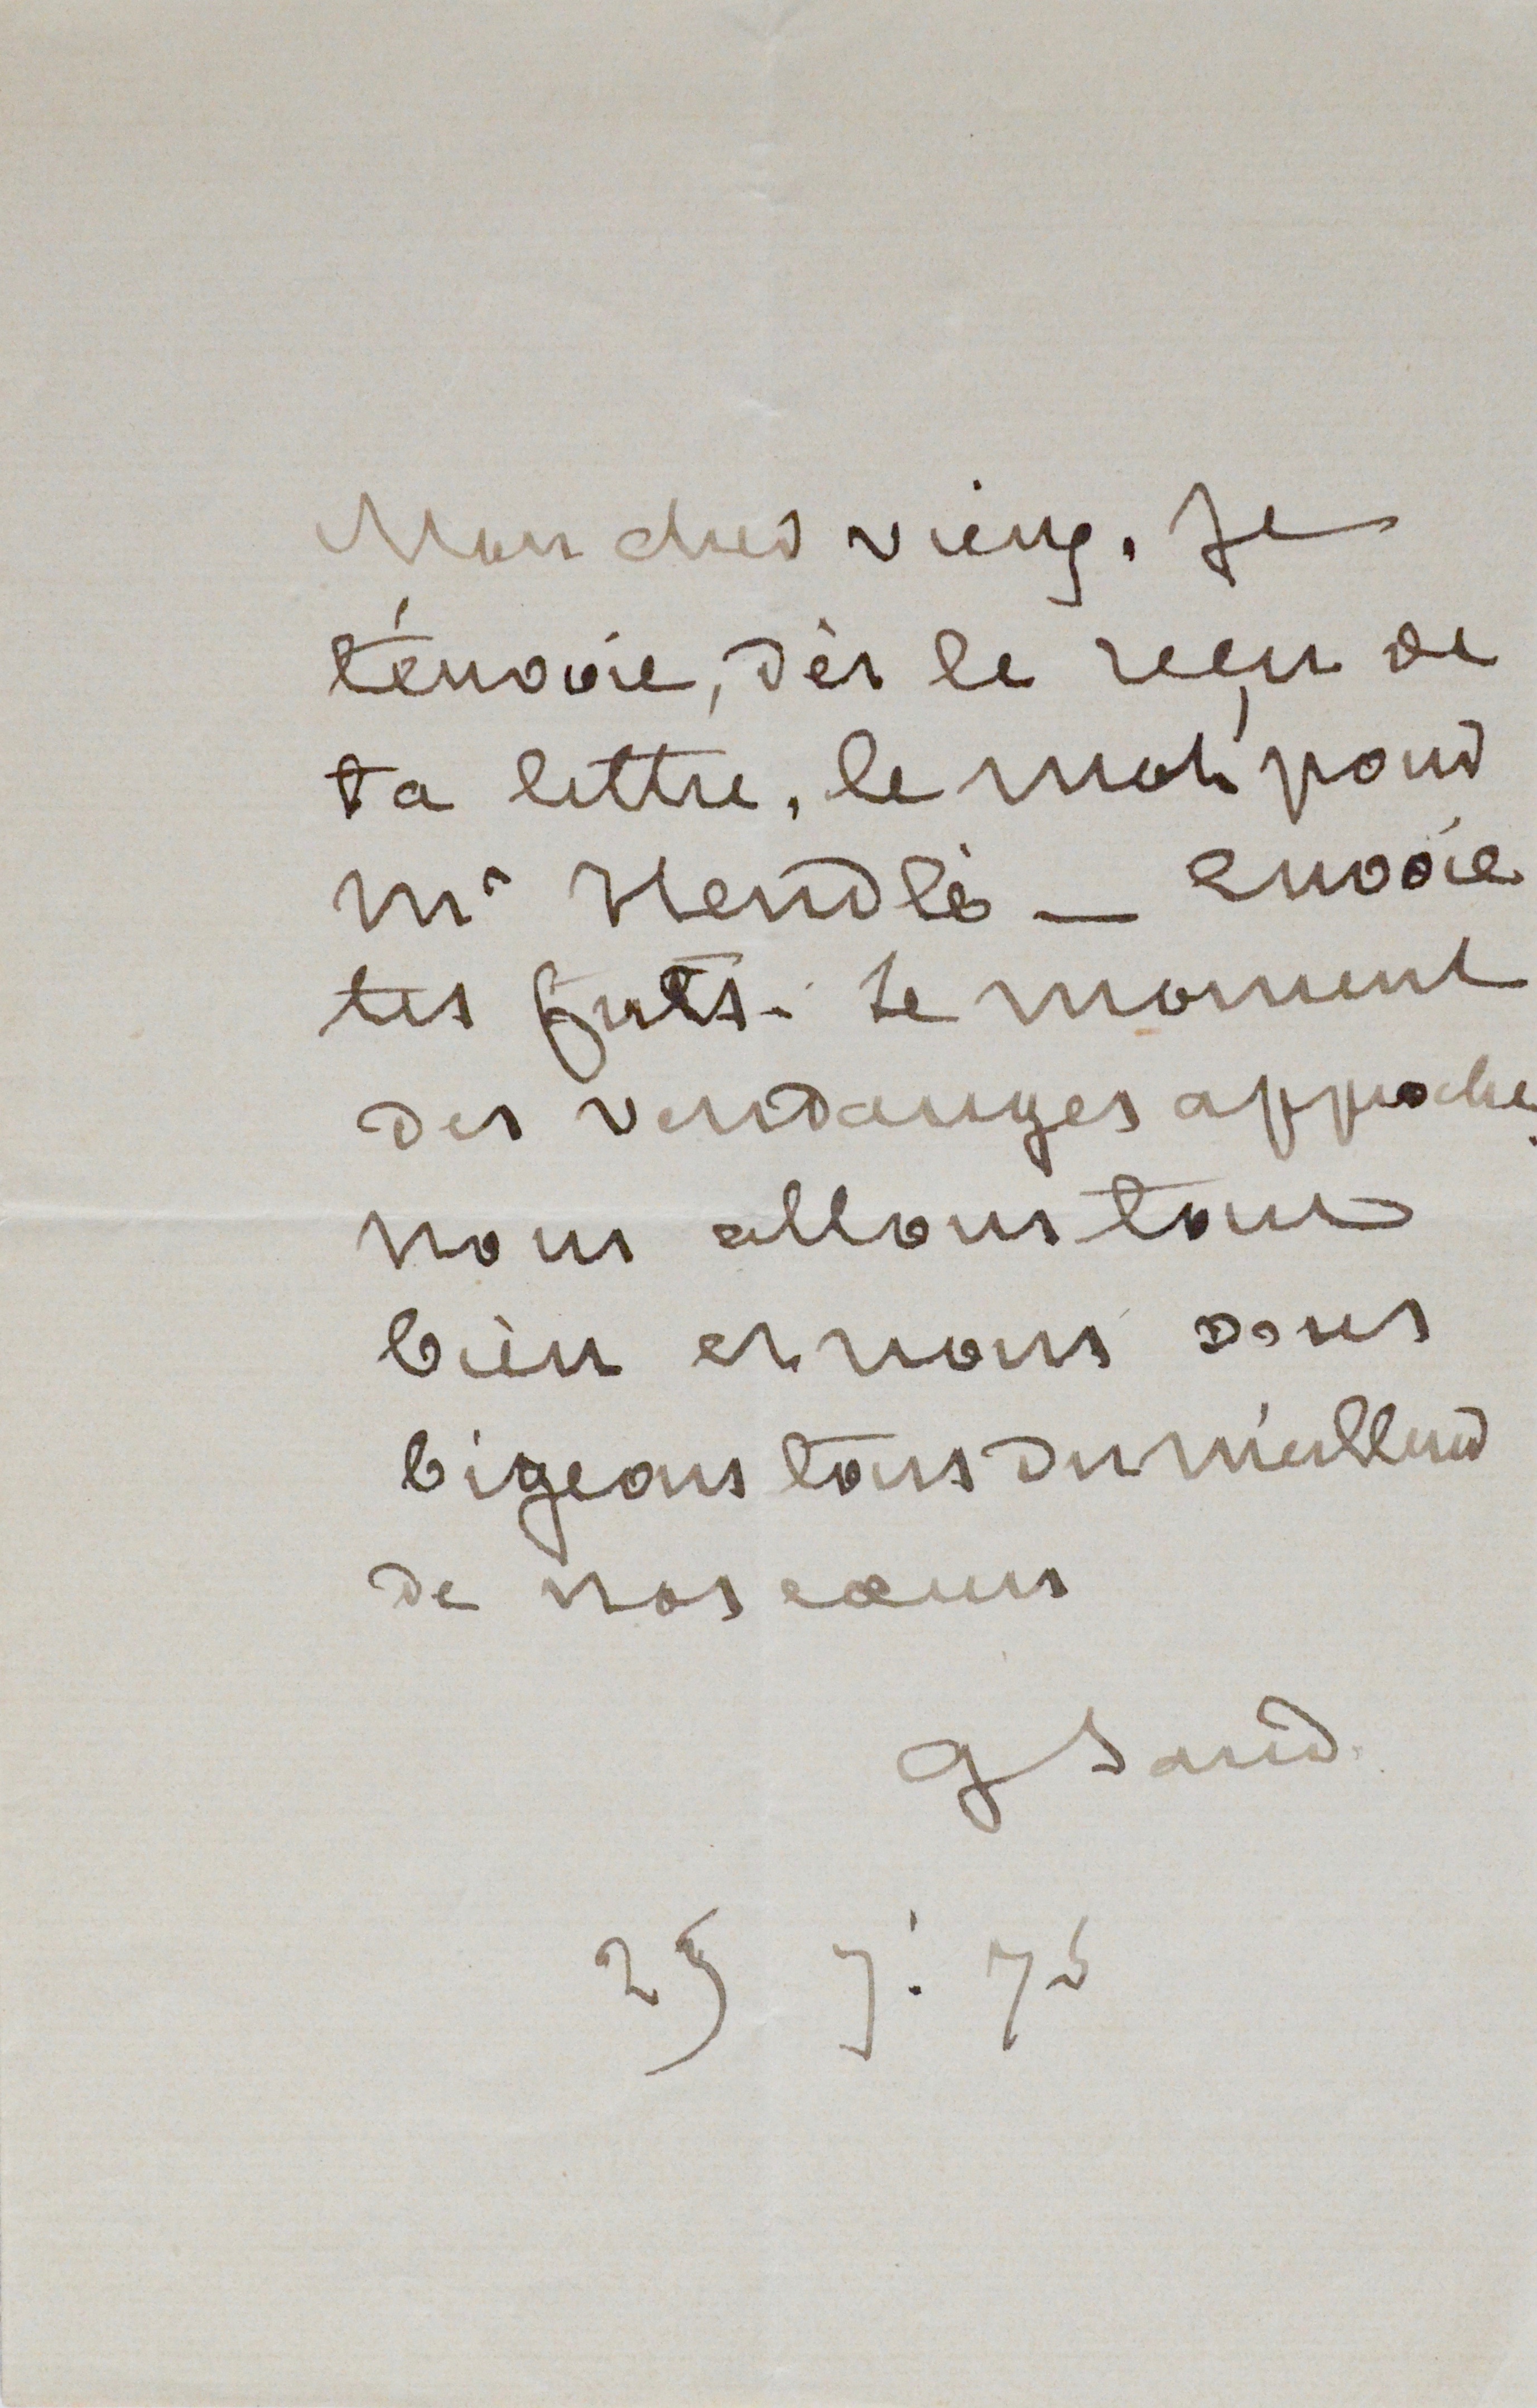 Mon cher vieux. Je
t'envoie, dès le reçu de
ta lettre, le mot pour
Mr Hendlé — envoie
tes futs. Le moment
des vendanges approche.
nous allons tous
bien et nous vous
bigeons tous du meilleur
de nos cœurs
G Sand
25 7: 75